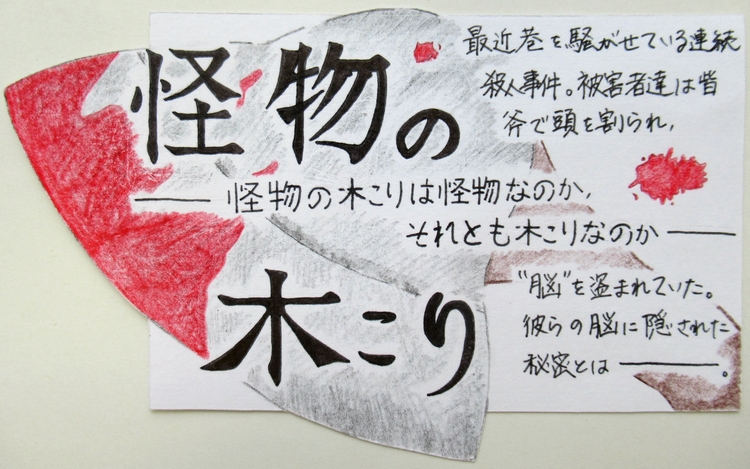 怪物の
木こり
最近巷を騒がせている連続
殺人事件。被害者達は皆
斧で頭を割られ、
―― 怪物の木こりは怪物なのか、
それとも木こりなのか ――
"脳"を盗まれていた。
彼らの脳に隠された
秘密とは ――。